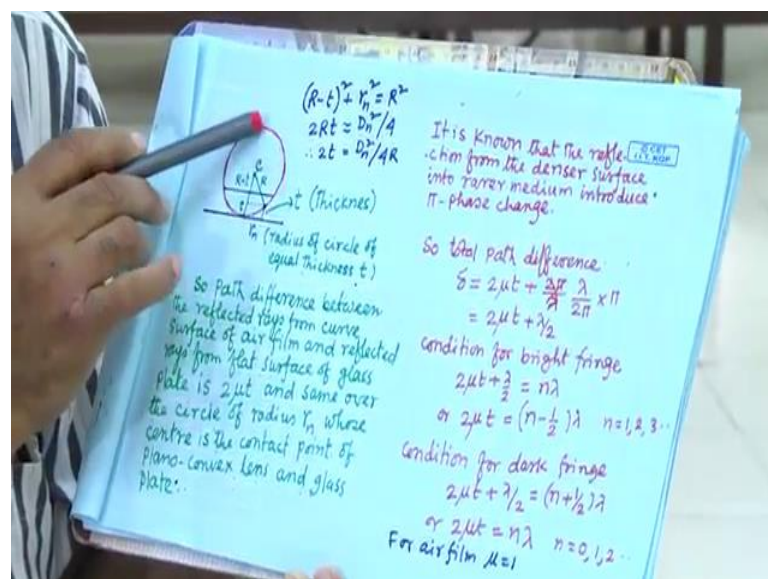 (R-t)² + rₙ² = R²
2Rt = Dₙ²/4
∴ 2t = Dₙ²/4R
C
R-t R
t
t (Thicknes)
rₙ (radius of circle of
equal thickness t)
So path difference between
the reflected rays from curve
surface of air film and reflected
rays from flat surface of glass
plate is 2μt and same over
the circle of radius rₙ whose
centre is the contact point of
plano-convex lens and glass
plate.
It is known that the refle-
-ction from the denser surface
into rarer medium introduce
π-phase change.
So total path difference
δ = 2μt + λ/2π × π
= 2μt + λ/2
condition for bright fringe
2μt + λ/2 = nλ
or 2μt = (n - 1/2)λ n = 1, 2, 3..
condition for dark fringe
2μt + λ/2 = (n + 1/2)λ
or 2μt = nλ n = 0, 1, 2 ..
For air film μ = 1